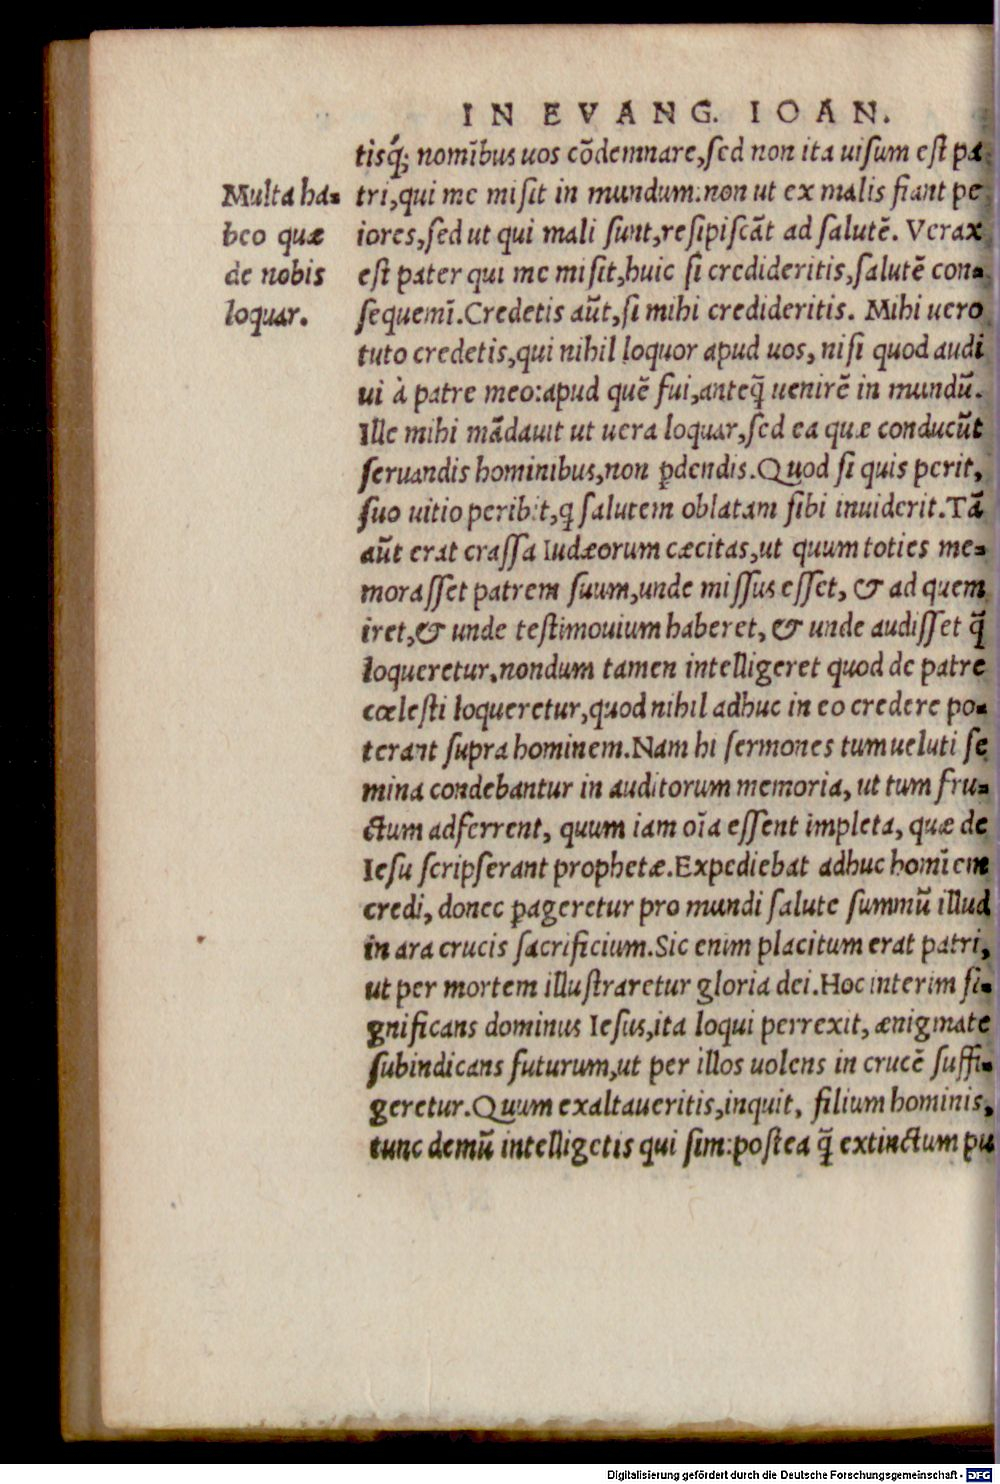 IN EVANG. IOAN.
tisq́; nomībus uos cōdemnare,sed non ita uisum est pa
tri,qui me misit in mundum:non ut ex malis fiant pe
iores,sed ut qui mali sunt,resipiscāt ad salutē. Verax
est pater qui me misit,huic si credideritis,salutē con=
sequemī.Credetis aūt,si mihi credideritis. Mihi uero
tuto credetis,qui nihil loquor apud uos, nisi quod audi
ui à patre meo:apud quē fui,anteq̃ uenirē in mundū.
Ille mihi mādauit ut uera loquar,sed ea quæ conducūt
seruandis hominibus,non ꝑdendis.Quod si quis perit,
suo uitio peribit,q salutem oblatam sibi inuiderit.Tā
aūt erat crassa Iudæorum cæcitas,ut quum toties me=
morasset patrem suum,unde missus esset, & ad quem
iret,& unde testimouium haberet, & unde audisset q̃
loqueretur,nondum tamen intelligeret quod de patre
cœlesti loqueretur,quod nihil adhuc in eo credere po=
terant supra hominem.Nam hi sermones tum ueluti se
mina condebantur in auditorum memoria, ut tum fru=
ctum adferrent, quum iam oīa essent impleta, quæ de
Iesu scripserant prophetæ.Expediebat adhuc homīem
credi, donec ꝑageretur pro mundi salute summū illud
in ara crucis sacrificium.Sic enim placitum erat patri,
ut per mortem illustraretur gloria dei.Hoc interim si=
gnificans dominus Iesus,ita loqui perrexit, ænigmate
subindicans futurum,ut per illos uolens in crucē suffi=
geretur.Quum exaltaueritis,inquit, filium hominis,
tunc demū intelligetis qui sim:postea q̃ extinctum pu
Multa ha=
beo quæ
de nobis
loquar.
Digitalisierung gefördert durch die Deutsche Forschungsgemeinschaft - DFG